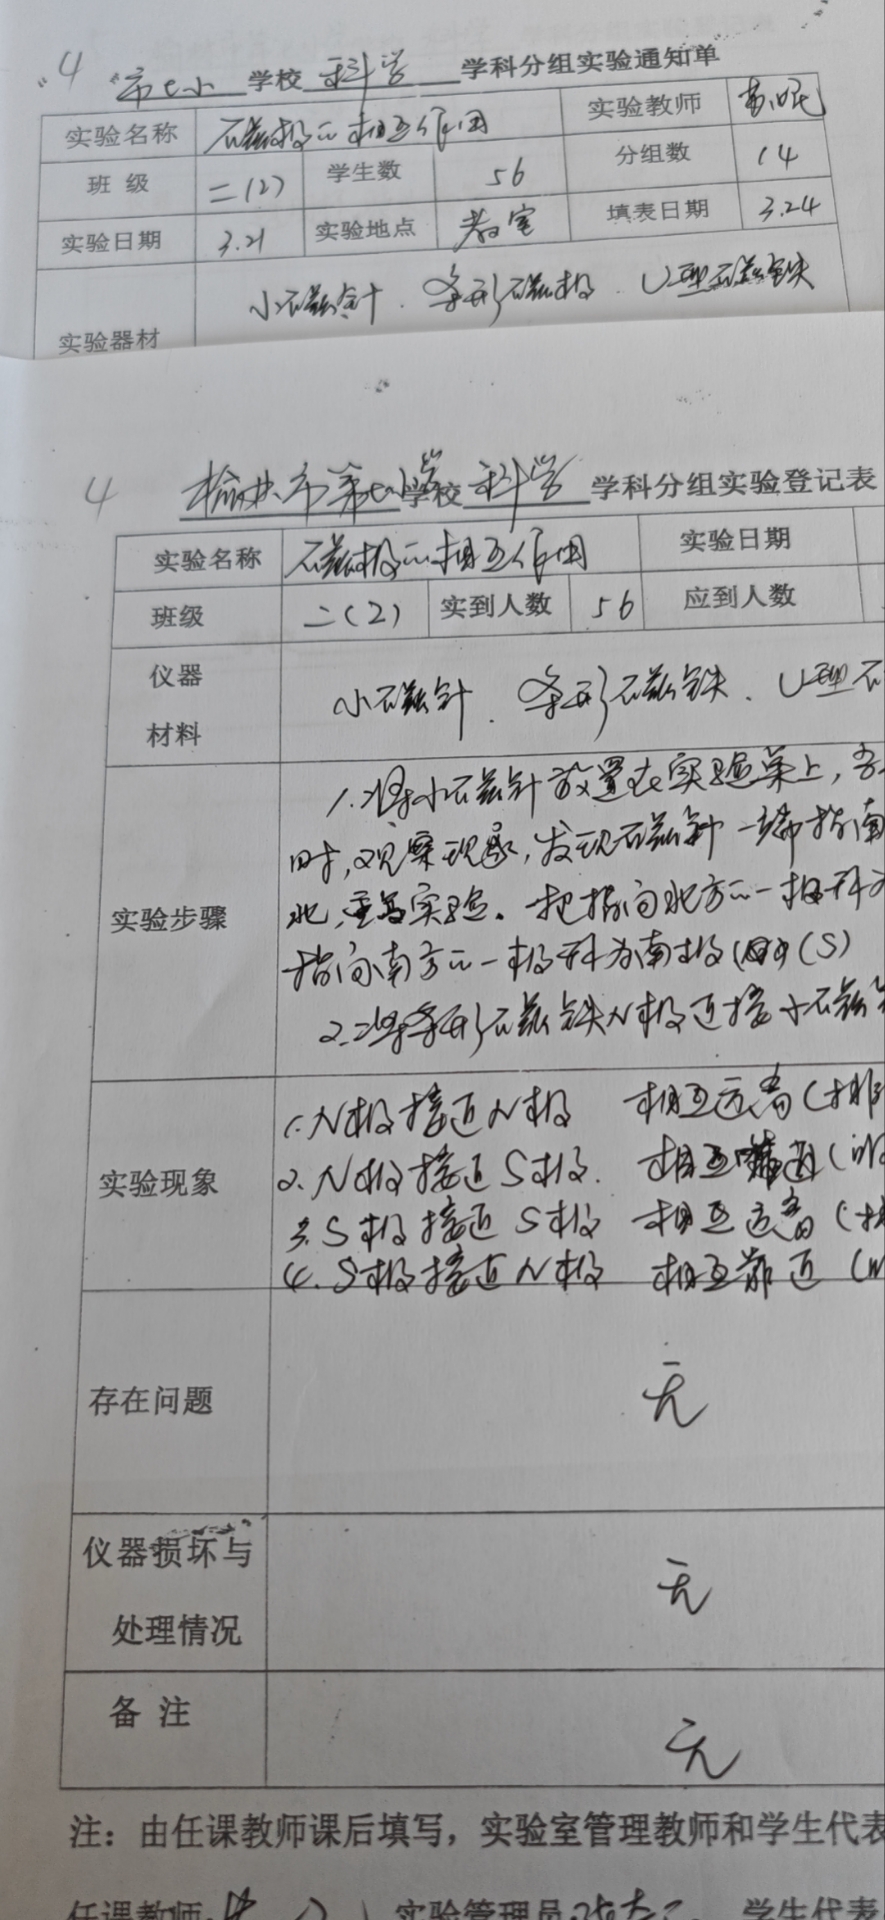 4 市七小 学校 科学 学科分组实验通知单
实验名称 磁极的相互作用 实验教师
班 级 二(2) 学生数 56 分组数 14
实验日期 3.21 实验地点 教室 填表日期 3.24
实验器材 小磁针、条形磁极、U型磁铁
4 榆林市第七小学 学校 科学 学科分组实验登记表
实验名称 磁极的相互作用 实验日期
班级 二(2) 实到人数 56 应到人数
仪器
材料 小磁针、条形磁铁、U型磁
1.将小磁针放置在实验桌上,
时,观察现象,发现磁针一端指南
实验步骤 北,重复实验。把指向北方的一极称为
指向南方的一极称为南极(S)
2.将条形磁铁N极近接小磁针
1.N极接近N极 相互远离(排
实验现象 2.N极接近S极. 相互靠近(吸
3.S极接近S极 相互远离(排
4.S极接近N极 相互靠近(吸
存在问题 无
仪器损坏与
处理情况 无
备 注 无
注：由任课教师课后填写，实验室管理教师和学生代表
任课教师 实验管理员 学生代表